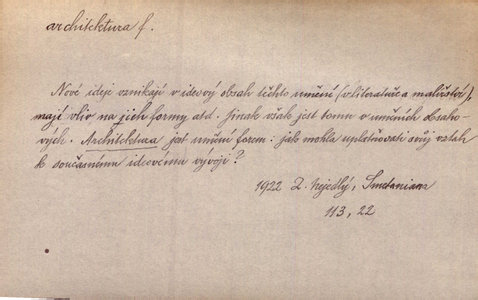 architektura f.
Nové ideje vznikají v ideový obsah těchto umění (v literatuře a malířství),
mají vliv na jich formy atd. Jinak však jest tomu v uměních obsaho-
vých. Architektura jest umění forem: jak mohla uplatňovati svůj vztah
k současnému ideovému vývoji?
1922 Z. Nejedlý, Smetaniana
113, 22